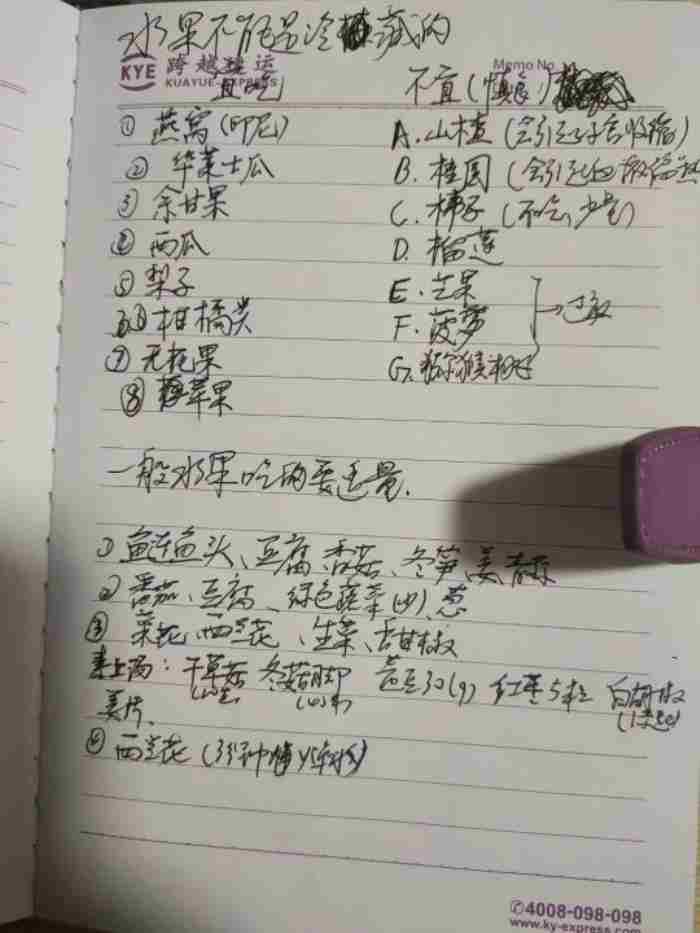 水果不能是冷藏的
KYE 跨越速运
KUAYUE-EXPRESS
Memo No.
宜吃 不宜(慎食)
① 燕窝(印尼) A.山楂(会引起子宫收缩)
② 华莱士瓜 B.桂圆(会引起
③ 余甘果 C.柿子(不吃、少量)
④ 西瓜 D.榴莲
⑤ 梨子 E.芒果
⑥ 柑橘类 F.菠萝 过敏
⑦ 无花果 G.猕猴桃
⑧ 苹果
一般水果吃的要适量.
① 鲢鱼头、豆腐、香菇、冬笋、姜、青蒜
② 番茄、豆腐、绿色蔬菜(少)、葱
③ 菜花、西兰花、生菜、甜椒
素上汤:干草菇 冬菇脚 黄豆30(g) 红枣5粒 白胡椒
姜片、
④ 西兰花
✆4008-098-098
www.ky-express.com